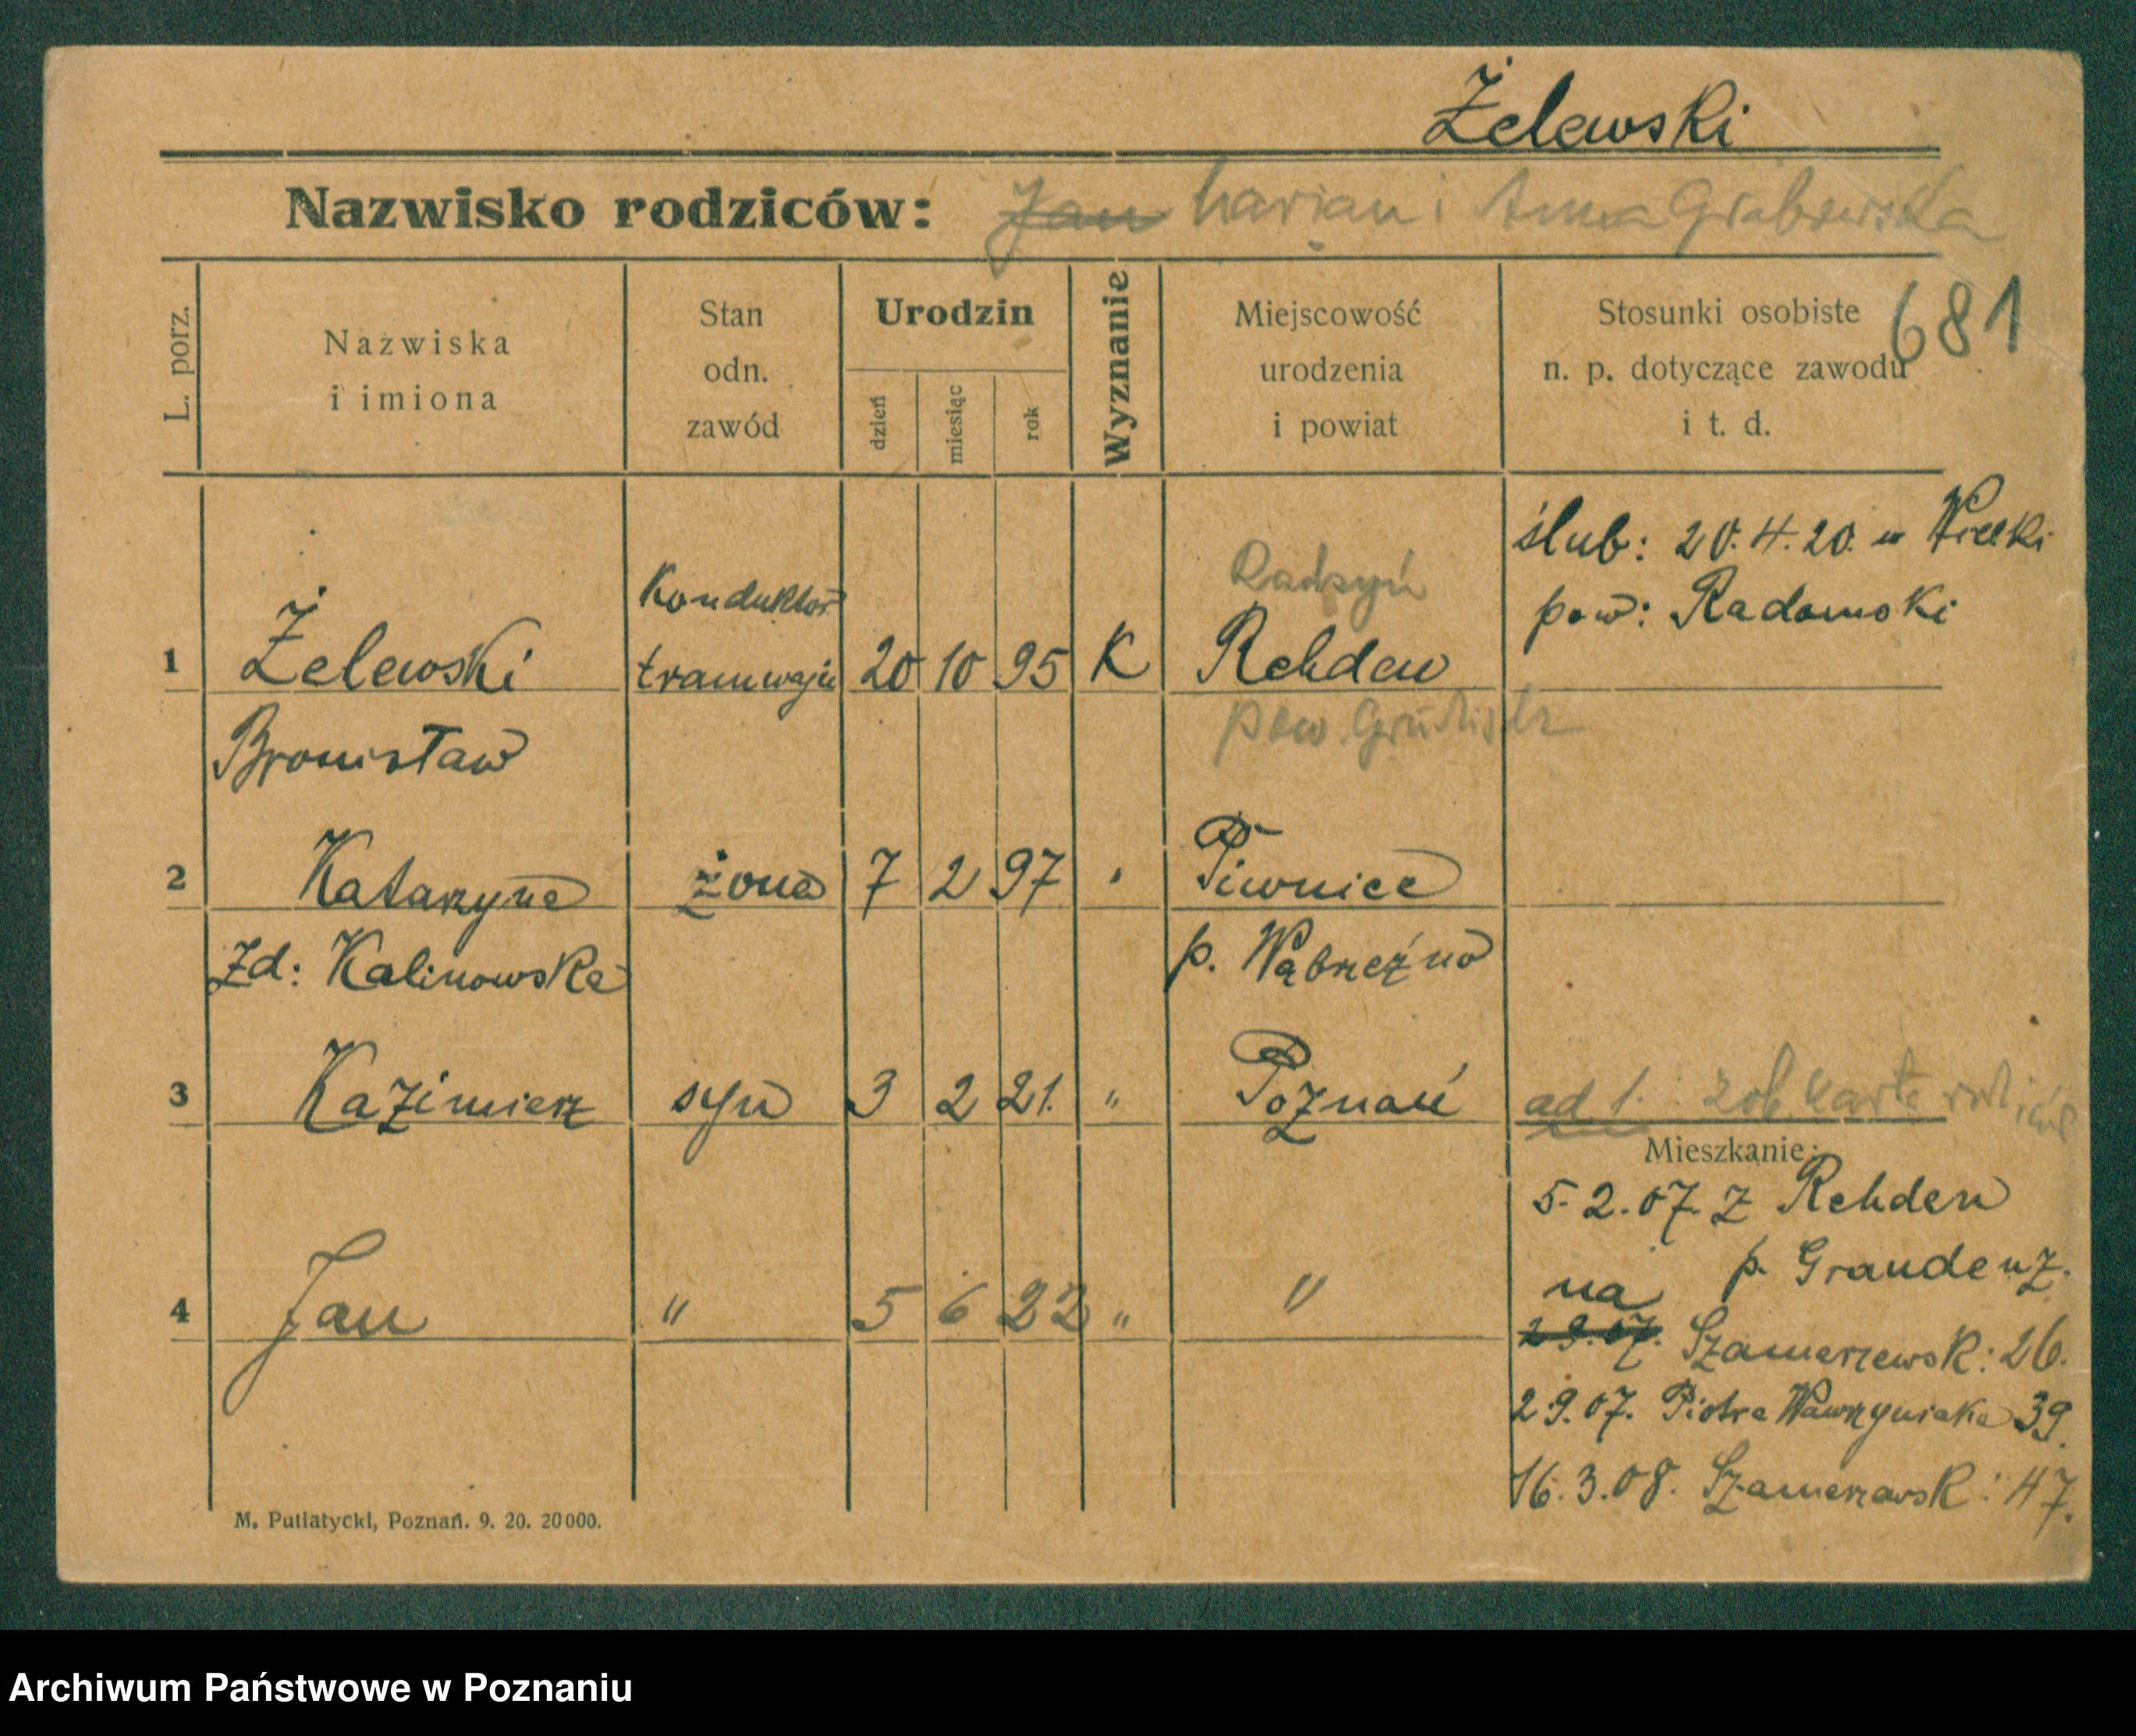 Żelewski
Nazwisko rodziców: Jan Marian i Anna Grabowska
681
L. porz.
Nazwiska
i imiona
Stan
odn.
zawód
Urodzin
dzień
miesiąc
rok
Wyznanie
Miejscowość
urodzenia
i powiat
Stosunki osobiste
n. p. dotyczące zawodu
i t. d.
ślub: 20.4.20. w
pow: Radomski
Konduktor
Radzyń
1 Żelewski tramwaju 20 10 95 K Rehden
pow. Grudziądz
Bronisław
2 Katarzyna żona 7 2 97 " Piwnice
Zd: Kalinowska p. Wąbrzeźno
3 Kazimierz syn 3 2 21. " Poznań ad 1. zob. karta
Mieszkanie:
5.2.07. z Rehden
p. Graudenz.
na
4 Jan " 5 6 22 " " 29.07. Szamarzewsk: 26.
29.07. Piotra Wawrzyniaka 39.
16.3.08. Szamarzewsk: 47.
M. Putiatycki, Poznań. 9. 20. 20000.
Archiwum Państwowe w Poznaniu